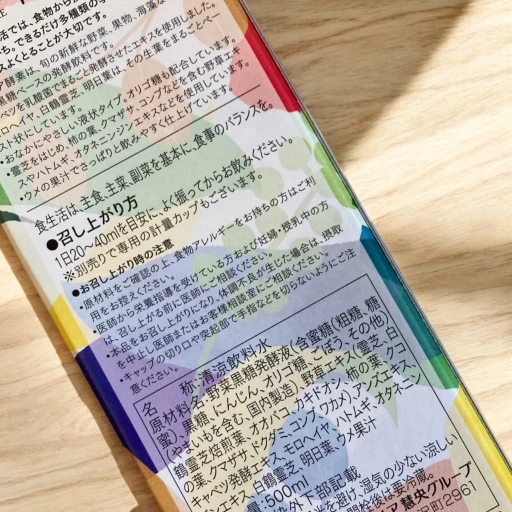 活では、食物から
ち、できるだけ多種類の
スよくとることが大切です。
ア酵素は、旬の新鮮な野菜、果物、海藻な
黒糖ベースの発酵飲料です。
ベツを乳酸菌でまるごと発酵させたエキスを使用しました。
ロヘイヤ、白鶴霊芝、明日葉は、その生葉をまるごとペー
スト状にしています。
•おなかにやさしい液状タイプ オリゴ糖も配合しています。
•霊芝をはじめ、柿の葉、クマザサ、コンブなどを含む野草エキ
スやハトムギ、オタネニンジンエキスなどを使用しています。
•ウメの果汁でさっぱりと飲みやすく仕上げています。
食生活は、主食、主菜、副菜を基本に、食事のバランスを。
●召し上がり方
1日20〜40mlを目安に、よく振ってからお飲みください。
※別売りで専用の計量カップもございます。
●お召し上がり時の注意
•原材料をご確認の上、食物アレルギーをお持ちの方はご利
用をお控えください。
•医師から栄養指導を受けている方および妊娠・授乳中の方
は、召し上がる前に医師にご相談ください。
•本品をお召し上がりになり、体調不良が生じた場合は、摂取
を中止し医師またはお客様相談室にご相談ください。
•キャップの切り口や突起部で手指などを切らないようにご注
意ください。
名 称:清涼飲料水
原材料名:野菜黒糖発酵液(含蜜糖(粗糖、糖
蜜)、黒糖、にんじん、オリゴ糖、ごぼう、その他)
(やまいもを含む、国内製造)、野草エキス(霊芝、白
鶴霊芝焙煎葉、オオバコ、カキドオシ、柿の葉、クコ
の葉、クマザサ、ドクダミ、
キャベツ発酵エキス、モロヘイヤ、ハトムギ、オタネニン
ジンエキス、白鶴霊芝、明日葉、ウメ果汁
量:500ml
枠外下部記載
を避け、湿気の少ない涼しい
開栓後は要冷蔵。
ア慧央グループ
沢町2961